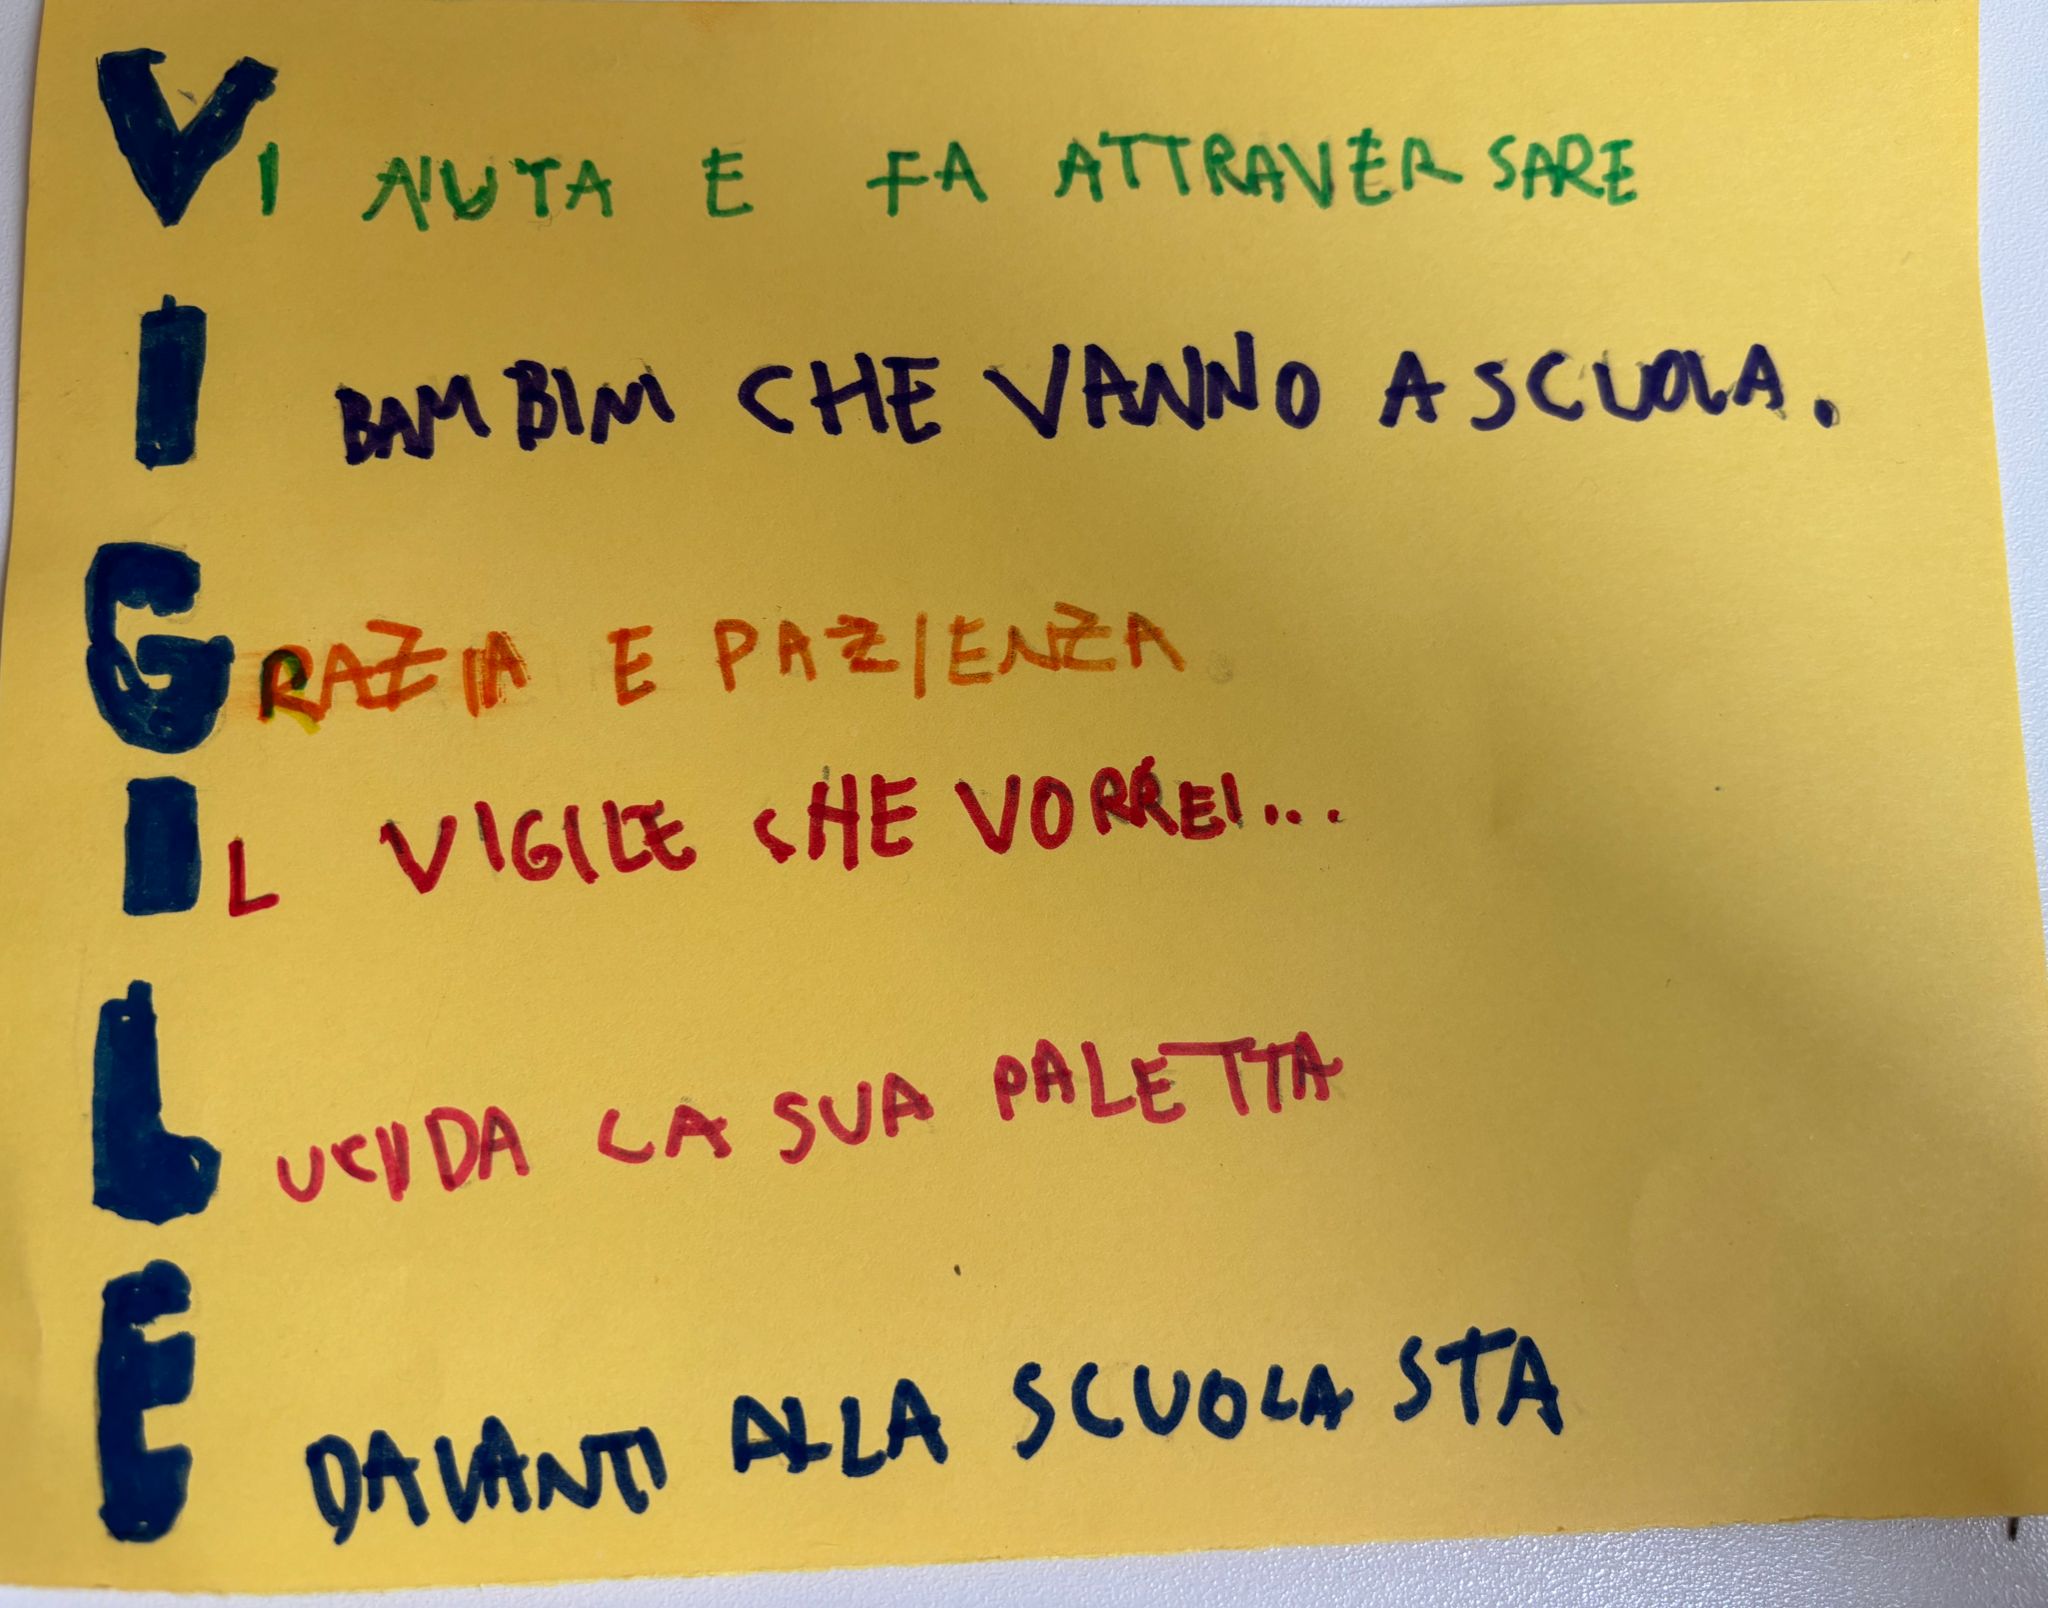 VI AIUTA E FA ATTRAVERSARE
I BAMBINI CHE VANNO A SCUOLA.
GRAZIA E PAZIENZA
IL VIGILE CHE VORREI...
LUCIDA LA SUA PALETTA
E DAVANTI ALLA SCUOLA STA